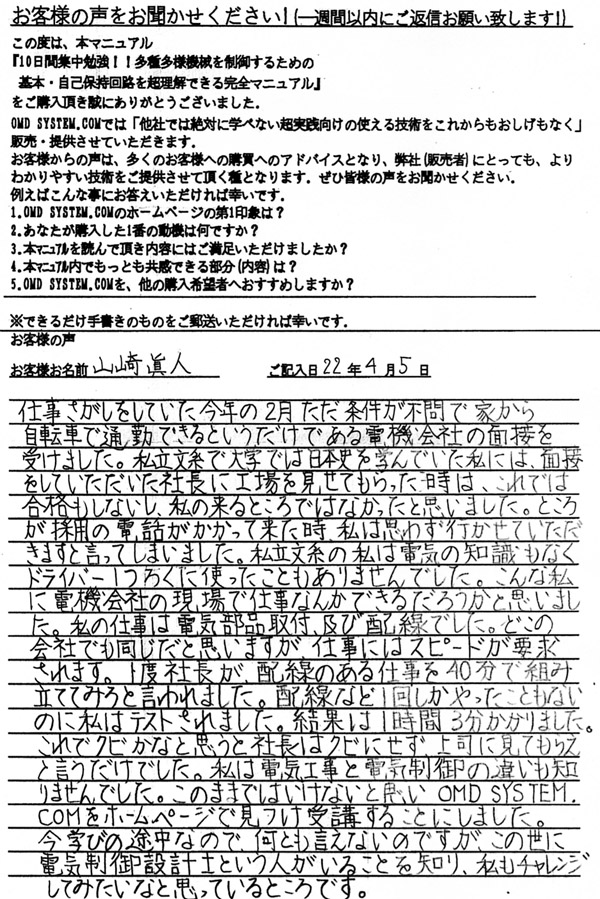 お客様の声をお聞かせください！(一週間以内にご返信お願い致します！)
この度は、本マニュアル
『10日間集中勉強！！多種多様機械を制御するための
基本・自己保持回路を超理解できる完全マニュアル』
をご購入頂き誠にありがとうございました。
OMD SYSTEM.COMでは「他社では絶対に学べない超実践向けの使える技術をこれからもおしげもなく」
販売・提供させていただきます。
お客様からの声は、多くのお客様への購買へのアドバイスとなり、弊社(販売者)にとっても、より
わかりやすい技術をご提供させて頂く種となります。ぜひ皆様の声をお聞かせください。
例えばこんな事にお答えいただければ幸いです。
1.OMD SYSTEM.COMのホームページの第1印象は？
2.あなたが購入した1番の動機は何ですか？
3.本マニュアルを読んで頂き内容にはご満足いただけましたか？
4.本マニュアル内でもっとも共感できる部分(内容)は？
5.OMD SYSTEM.COMを、他の購入希望者へおすすめしますか？
※できるだけ手書きのものをご郵送いただければ幸いです。
お客様の声
お客様お名前 山崎眞人 ご記入日 22年4月5日
仕事さがしをしていた今年の2月ただ条件が不問で家から
自転車で通勤できるというだけである電機会社の面接を
受けました。私立文系で大学では日本史を学んでいた私には、面接
をしていただいた社長に工場を見せてもらった時は、これでは
合格もしないし、私の来るところではなかったと思いました。ところ
が採用の電話がかかって来た時、私は思わず行かせていただ
きますと言ってしまいました。私立文系の私は電気の知識もなく
ドライバー1つろくに使ったこともありませんでした。こんな私
に電機会社の現場で仕事なんかできるだろうかと思いまし
た。私の仕事は電気部品取付、及び配線でした。どこの
会社でも同じだと思いますが仕事にはスピードが要求
されます。1度社長が、配線のある仕事を40分で組み
立ててみろと言われました。配線など1回しかやったこともない
のに私はテストされました。結果は1時間3分かかりました。
これでクビかなと思うと社長はクビにせず上司に見てもらえ
と言うだけでした。私は電気工事と電気制御の違いも知
りませんでした。このままではいけないと思いOMD SYSTEM.
COMをホームページで見つけ受講することにしました。
今学びの途中なので、何とも言えないのですが、この世に
電気制御設計士という人がいることを知り、私もチャレンジ
してみたいなと思っているところです。